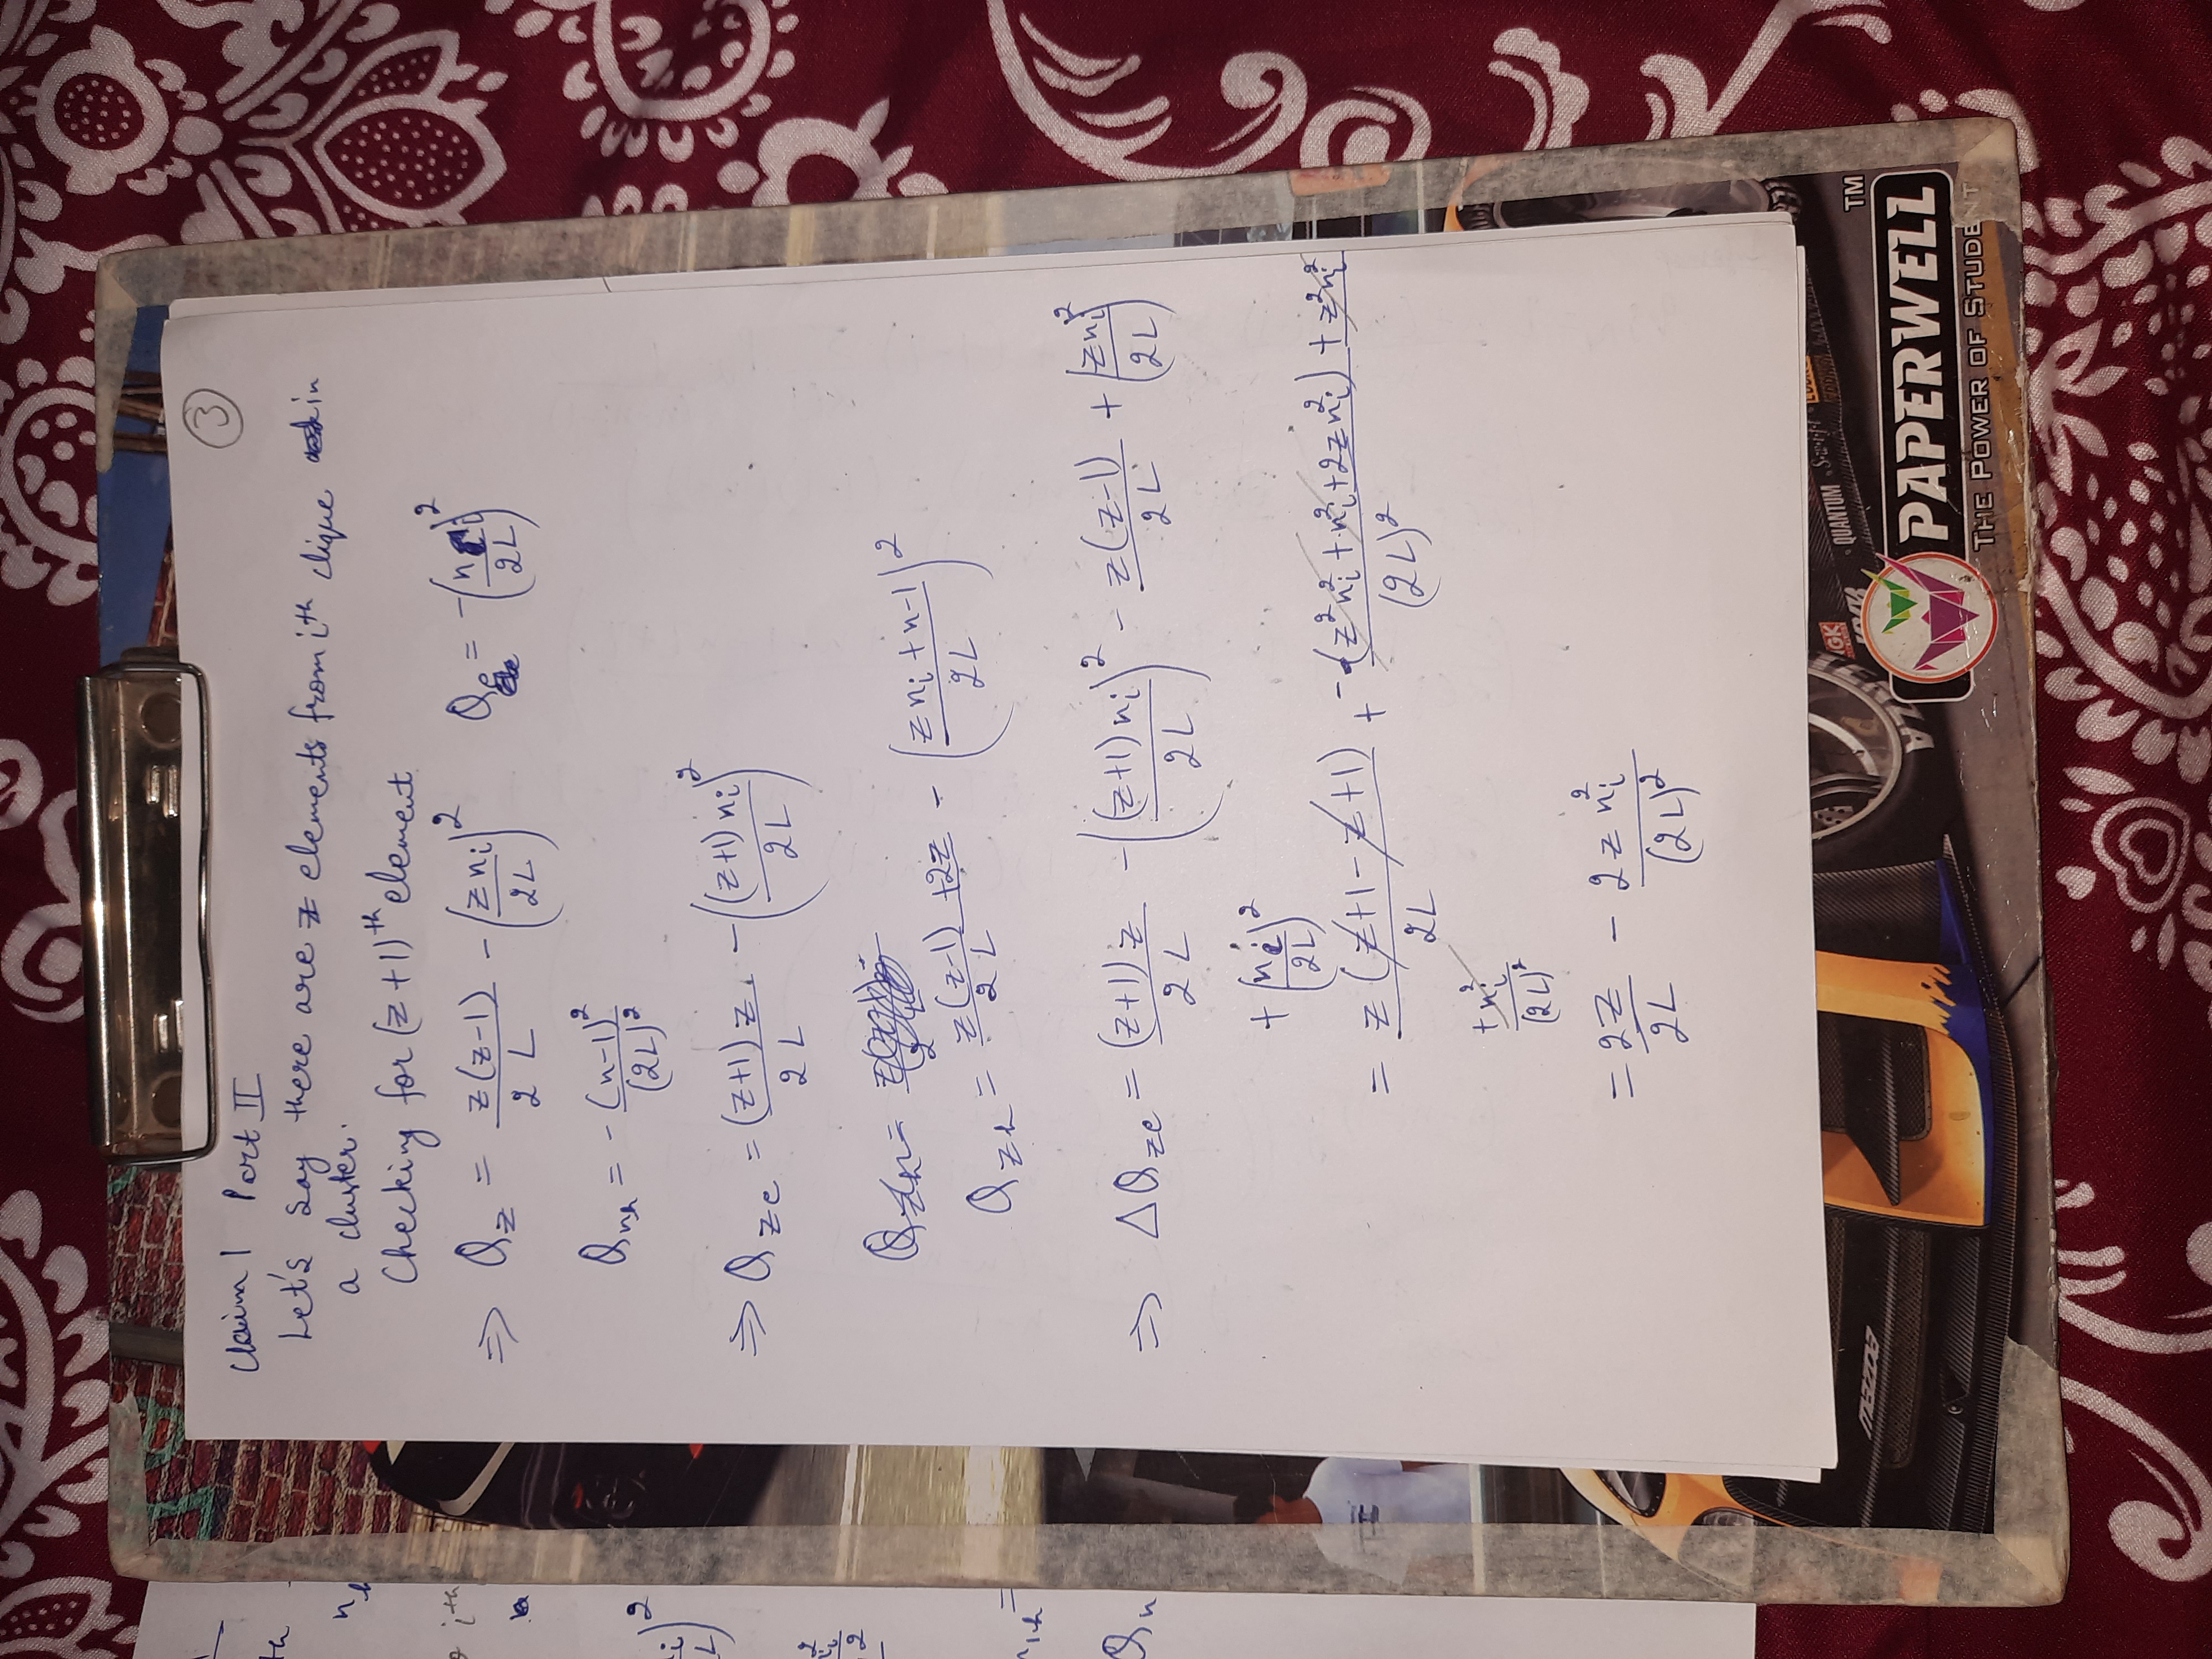 ③
Claim 1 Part II
Let's say there are z elements from ith clique in
a cluster.
Checking for (z+1)th element
⇒ Q_z = z(z-1)/2L - (z n_i/2L)^2 Q_e = -(n_i/2L)^2
Q_nh = -(n-1)^2/(2L)^2
⇒ Q_ze = (z+1)z/2L - ((z+1)n_i/2L)^2
Q_zh =
Q_zh = z(z-1)+2z/2L - (z n_i + n-1/2L)^2
⇒ ΔQ_ze = (z+1)z/2L - ((z+1)n_i/2L)^2 - z(z-1)/2L + (z n_i/2L)^2
+ (n_i/2L)^2
= z(z+1-z+1)/2L + -(z^2 n_i^2 + n_i^2 + 2z n_i^2) + z^2 n_i^2/(2L)^2
+ n_i^2/(2L)^2
= 2z/2L - 2z n_i^2/(2L)^2
mazda
QUANTUM
TM
PAPERWELL
THE POWER OF STUDENT